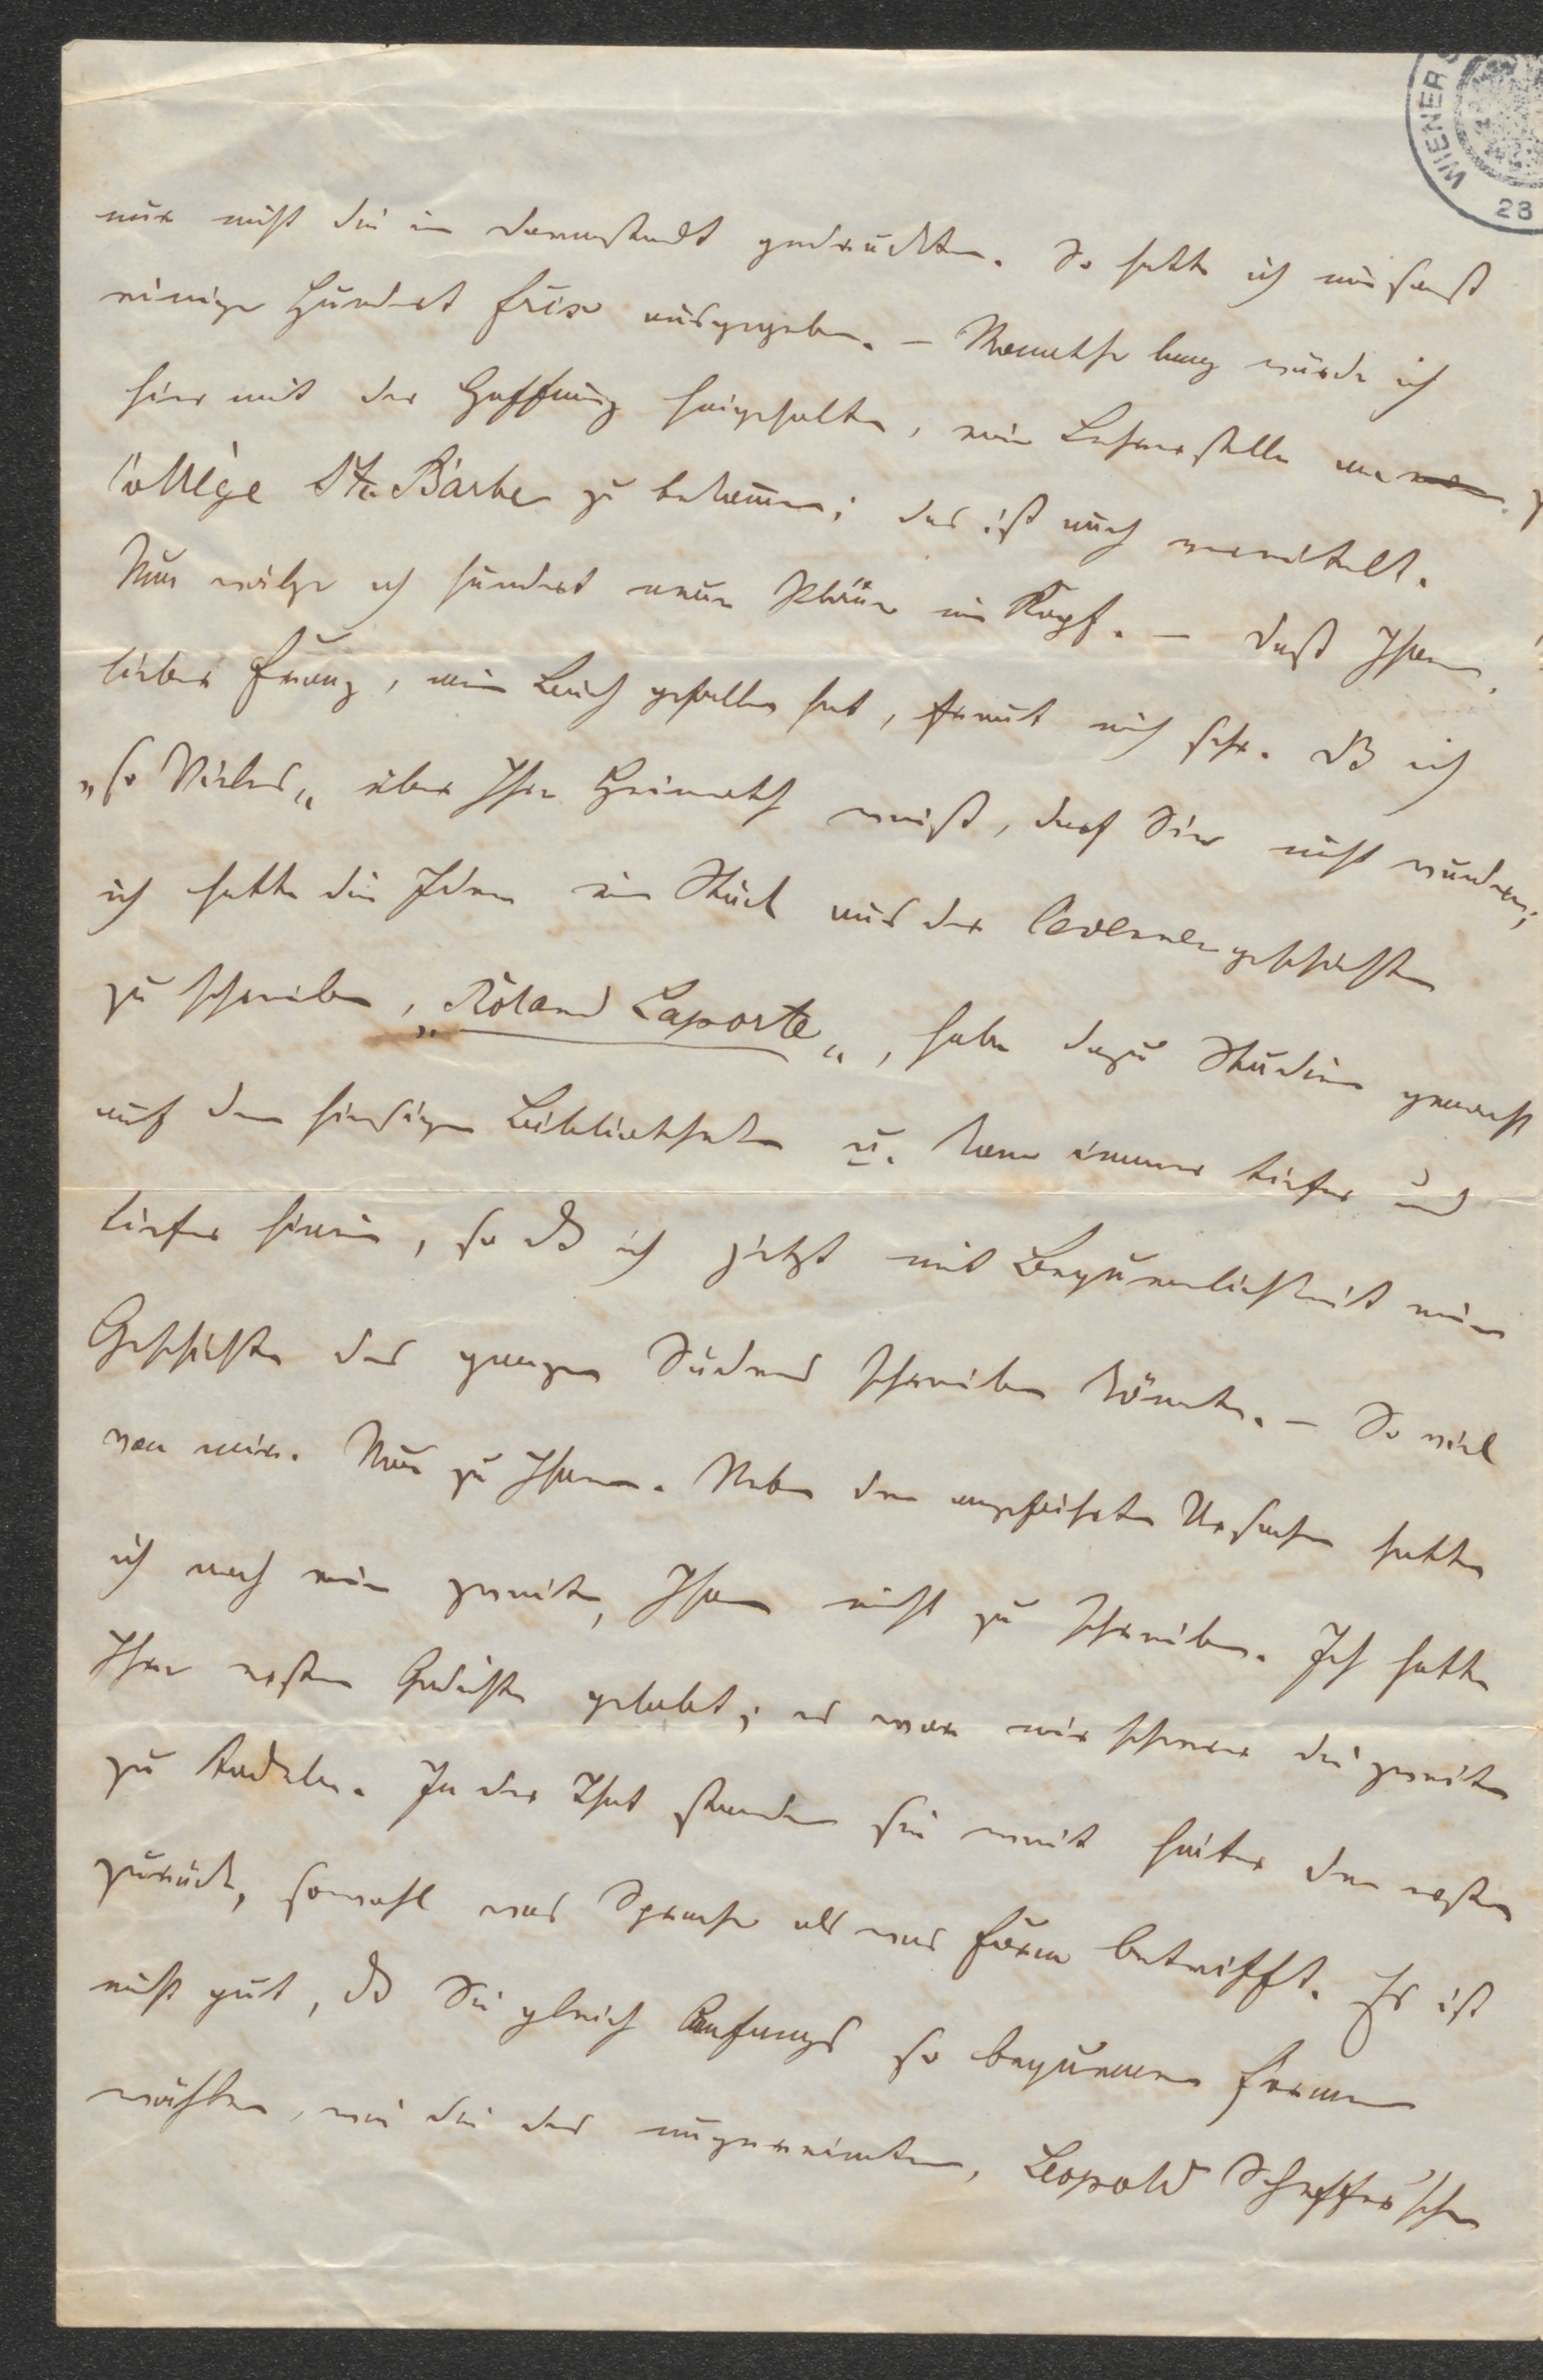 WIENER
28
nur nicht die in Darmstadt gedruckten. So hatte ich umsonst
einige Hundert frcs ausgegeben. – Monathe lang wurde ich
hier mit der Hoffnung hingehalten, eine Lehrerstelle am
Collège Ste Barbe zu bekom̄en; das ist auch vereitelt.
Nun wälze ich hundert neue Pläne im Kopf. – Daß Ihnen,
lieber Franz, mein Buch gefallen hat, freut mich sehr. Dß ich
„so Vieles„ über Ihre Heimath weiß, darf Sie nicht wundern;
ich hatte die Idee ein Stück aus der Cevennengeschichte
zu schreiben, „Roland Laporte„, habe dazu Studien gemacht
auf den hiesigen Bibliotheken u. kam immer tiefer und
tiefer hinein, so dß ich jetzt mit Bequemlichkeit eine
Geschichte des ganzen Südens schreiben könnte. – So viel
von mir. Nun zu Ihnen. Neben der angeführten Ursache hatte
ich noch eine zweite, Ihnen nicht zu schreiben. Ich hatte
Ihre ersten Gedichte gelobt; es war mir schwer die zweiten
zu tadeln. In der That standen sie weit hinter den ersten
zurück, sowohl was Sprache als was Form betrifft. Es ist
nicht gut, dß Sie gleich Anfangs so bequeme Formen
wählen, wie die des ungereimten, Leopold Schefer'schen